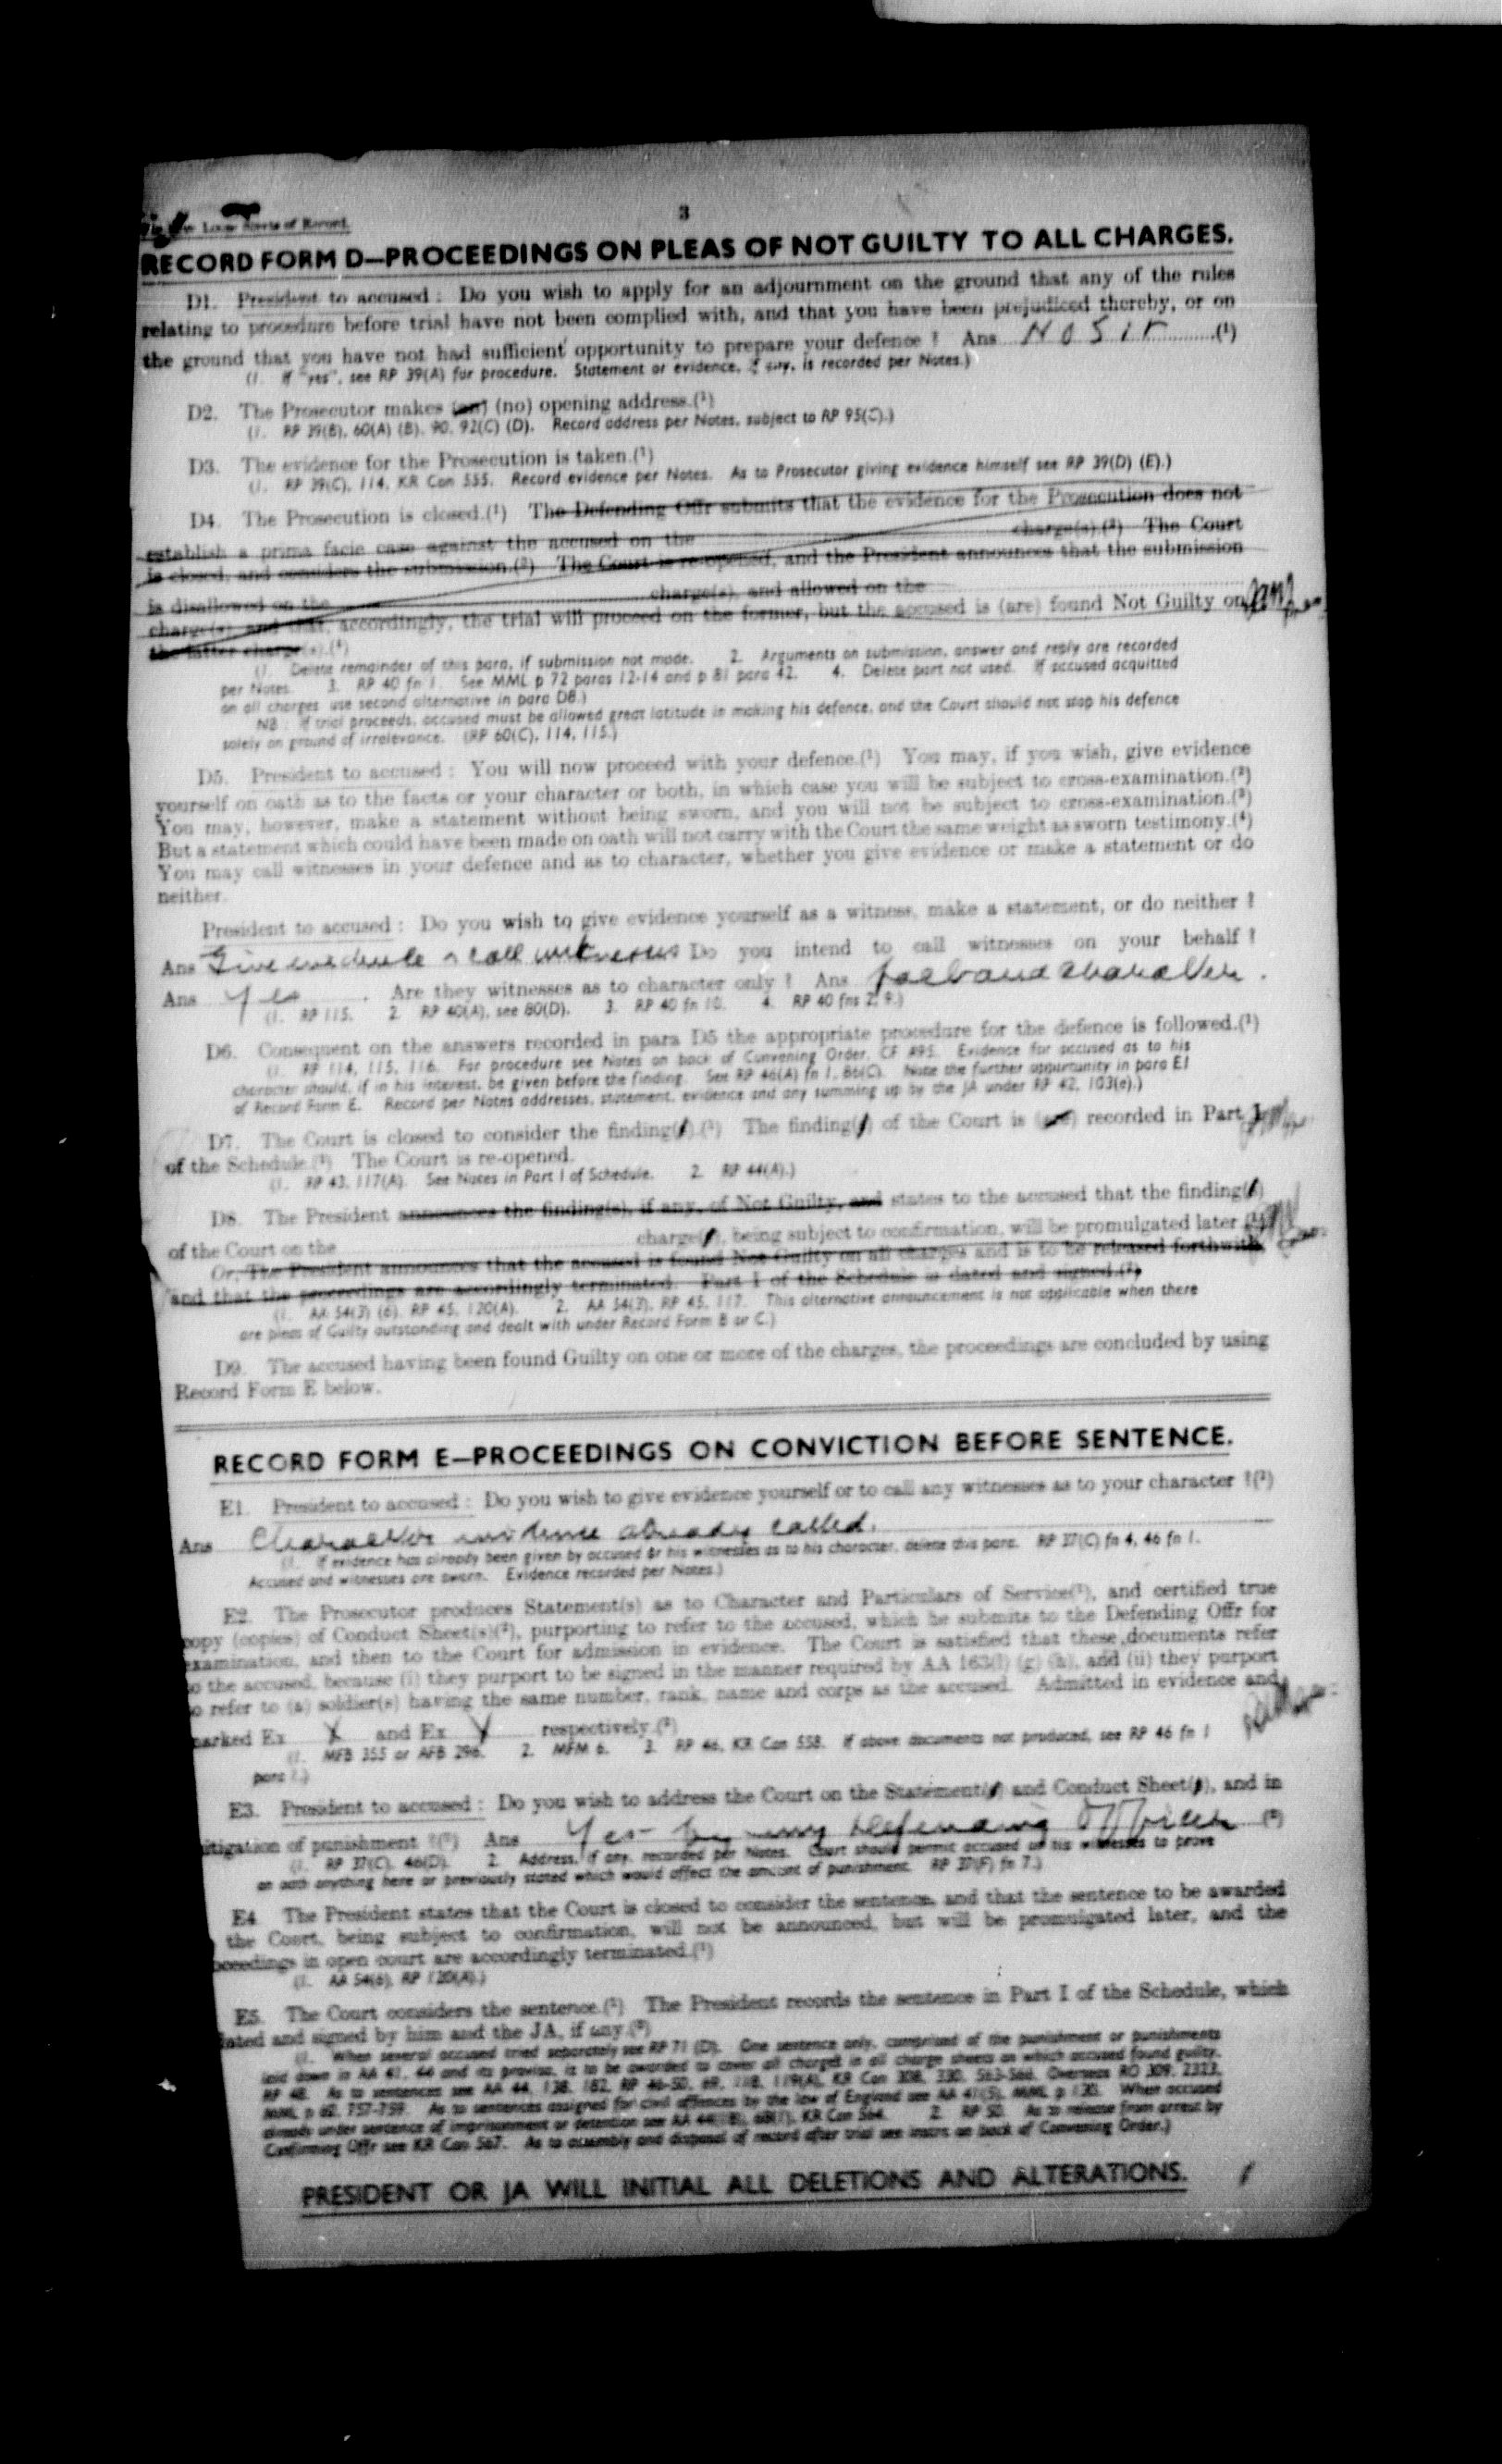 3
of Record.
RECORD FORM D—PROCEEDINGS ON PLEAS OF NOT GUILTY TO ALL CHARGES.
D1. President to accused : Do you wish to apply for an adjournment on the ground that any of the rules
relating to procedure before trial have not been complied with, and that you have been prejudiced thereby, or on
the ground that you have not had sufficient opportunity to prepare your defence ? Ans No Sir (¹)
(1. If "yes", see RP 39(A) for procedure. Statement or evidence, if any, is recorded per Notes.)
D2. The Prosecutor makes (an) (no) opening address.(¹)
(1. RP 39(B), 60(A) (B), 90, 92(C) (D). Record address per Notes, subject to RP 95(C).)
D3. The evidence for the Prosecution is taken.(¹)
(1. RP 39(C), 114, KR Can 555. Record evidence per Notes. As to Prosecutor giving evidence himself see RP 39(D) (E).)
D4. The Prosecution is closed.(¹) The Defending Offr submits that the evidence for the Prosecution does not
establish a prima facie case against the accused on the charge(s).(²) The Court
is closed, and considers the submission.(³) The Court is re-opened, and the President announces that the submission
is disallowed on the charge(s), and allowed on the
charge(s) and that, accordingly, the trial will proceed on the former, but the accused is (are) found Not Guilty on
the latter charge(s).(⁴)
(1. Delete remainder of this para, if submission not made. 2. Arguments on submission, answer and reply are recorded
per Notes. 3. RP 40 fn 1. See MML p 72 paras 12-14 and p 81 para 42. 4. Delete part not used. If accused acquitted
on all charges use second alternative in para D8.)
NB : If trial proceeds, accused must be allowed great latitude in making his defence, and the Court should not stop his defence
solely on ground of irrelevance. (RP 60(C), 114, 115.)
D5. President to accused : You will now proceed with your defence.(¹) You may, if you wish, give evidence
yourself on oath as to the facts or your character or both, in which case you will be subject to cross-examination.(²)
You may, however, make a statement without being sworn, and you will not be subject to cross-examination.(³)
But a statement which could have been made on oath will not carry with the Court the same weight as sworn testimony.(⁴)
You may call witnesses in your defence and as to character, whether you give evidence or make a statement or do
neither.
President to accused : Do you wish to give evidence yourself as a witness, make a statement, or do neither ?
Ans Give evidence & call witnesses Do you intend to call witnesses on your behalf ?
Ans Yes . Are they witnesses as to character only ? Ans fact and character .
(1. RP 115. 2. RP 40(A), see 80(D). 3. RP 40 fn 10. 4. RP 40 fns 2, 9.)
D6. Consequent on the answers recorded in para D5 the appropriate procedure for the defence is followed.(¹)
(1. RP 114, 115, 116. For procedure see Notes on back of Convening Order, CF A95. Evidence for accused as to his
character should, if in his interest, be given before the finding. See RP 46(A) fn 1, 86(C). Note the further opportunity in para E1
of Record Form E. Record per Notes addresses, statement, evidence and any summing up by the JA under RP 42, 103(e).)
D7. The Court is closed to consider the finding(s).(¹) The finding(s) of the Court is (are) recorded in Part I
of the Schedule.(²) The Court is re-opened.
(1. RP 43, 117(A). See Notes in Part I of Schedule. 2. RP 44(A).)
D8. The President announces the finding(s), if any, of Not Guilty, and states to the accused that the finding(s)
of the Court on the charge(s), being subject to confirmation, will be promulgated later.(¹)
Or, The President announces that the accused is found Not Guilty on all charges and is to be released forthwith,
and that the proceedings are accordingly terminated. Part I of the Schedule is dated and signed.(²)
(1. AA 54(3) (6), RP 45, 120(A). 2. AA 54(3), RP 45, 117. This alternative announcement is not applicable when there
are pleas of Guilty outstanding and dealt with under Record Form B or C.)
D9. The accused having been found Guilty on one or more of the charges, the proceedings are concluded by using
Record Form E below.
RECORD FORM E—PROCEEDINGS ON CONVICTION BEFORE SENTENCE.
E1. President to accused : Do you wish to give evidence yourself or to call any witnesses as to your character ?(¹)
Ans Character evidence already called.
(1. If evidence has already been given by accused or his witnesses as to his character, delete this para. RP 37(C) fn 4, 46 fn 1.
Accused and witnesses are sworn. Evidence recorded per Notes.)
E2. The Prosecutor produces Statement(s) as to Character and Particulars of Service(¹), and certified true
copy (copies) of Conduct Sheet(s)(²), purporting to refer to the accused, which he submits to the Defending Offr for
examination, and then to the Court for admission in evidence. The Court is satisfied that these documents refer
o the accused, because (i) they purport to be signed in the manner required by AA 163(1) (g) (h), and (ii) they purport
o refer to (a) soldier(s) having the same number, rank, name and corps as the accused. Admitted in evidence and
marked Ex X and Ex Y respectively.(³)
(1. MFB 355 or AFB 296. 2. MFM 6. 3. RP 46, KR Can 558. If above documents not produced, see RP 46 fn 1
para 2.)
E3. President to accused : Do you wish to address the Court on the Statement(s) and Conduct Sheet(s), and in
itigation of punishment ?(¹) Ans Yes - by my Defending Officer (²)
(1. RP 37(C), 46(D). 2. Address, if any, recorded per Notes. Court should permit accused or his witnesses to prove
on oath anything here or previously stated which would affect the amount of punishment. RP 37(F) fn 7.)
E4. The President states that the Court is closed to consider the sentence, and that the sentence to be awarded
the Court, being subject to confirmation, will not be announced, but will be promulgated later, and the
oceedings in open court are accordingly terminated.(¹)
(1. AA 54(6), RP 120(A).)
E5. The Court considers the sentence.(¹) The President records the sentence in Part I of the Schedule, which
dated and signed by him and the JA, if any.(²)
(1. When several accused tried separately see RP 71 (D). One sentence only, comprised of the punishment or punishments
laid down in AA 41, 44 and its proviso, is to be awarded to cover all charges in all charge sheets on which accused found guilty.
RP 48. As to sentences see AA 44, 138, 182, RP 46-50, 69, 118, 119(A), KR Can 308, 330, 563-566, Overseas RO 309, 2323,
MML p 62, 757-759. As to sentences assigned for civil offences by the law of England see AA 41(5), MML p 130. When accused
already under sentence of imprisonment or detention see AA 44(1B), 68(1), KR Can 564. 2. RP 50. As to release from arrest by
Confirming Offr see KR Can 567. As to assembly and disposal of record after trial see instrs on back of Convening Order.)
PRESIDENT OR JA WILL INITIAL ALL DELETIONS AND ALTERATIONS.